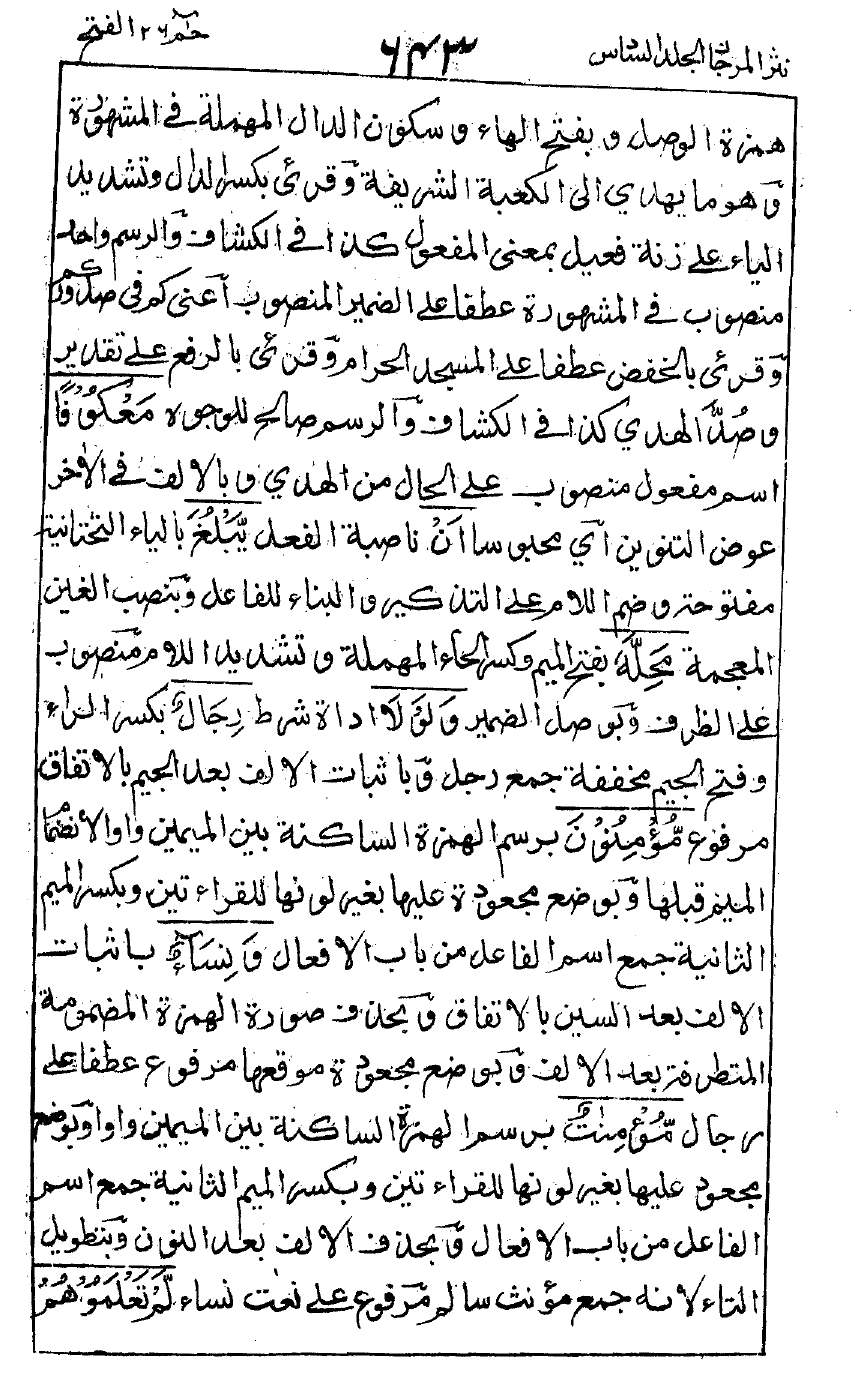 نثر المرجان الجلد السادس ٦٤٣ حٰمٓ ٢٦ الفتح
همزة الوصل و بفتح الهاء و سكون الدال المهملة في المشهورة
وهو ما يهدي الى الكعبة الشريفة وقرئ بكسر الدال وتشديد
الياء على زنة فعيل بمعنى المفعول كذا في الكشاف والرسم واحد
منصوب في المشهورة عطفا على الضمير المنصوب أعنى كم في صدوركم
وقرئ بالخفض عطفا على المسجد الحرام وقرئ بالرفع على تقدير
وصُدَّ الهدي كذا في الكشاف والرسم صالح للوجوه مَعْكُوْفًا
اسم مفعول منصوب على الحال من الهدي وبالالف في الأخر
عوض التنوين أي محبوسا اَنْ ناصبة الفعل يَّبْلُغَ بالياء التحتانية
مفتوحة وضم اللام على التذكير والبناء للفاعل وبنصب الغين
المعجمة مَحِلَّهٗ بفتح الميم وكسر الحاء المهملة وتشديد اللام منصوب
على الظرف وبوصل الضمير وَلَوْلَا اداة شرط رِجَالٌ بكسر الراء
وفتح الجيم مخففة جمع رجل وباثبات الالف بعد الجيم بالاتفاق
مرفوع مُّؤْمِنُوْنَ برسم الهمزة الساكنة بين الميمين واوا لانضمام
الميم قبلها وبوضع مجعودة عليها بغير لونها للقراءتين وبكسر الميم
الثانية جمع اسم الفاعل من باب الافعال وَنِسَآءٌ باثبات
الالف بعد السين بالاتفاق وبحذف صورة الهمزة المضمومة
المتطرفة بعد الالف وبوضع مجعودة موقعها مرفوع عطفا على
رجال مُّؤْمِنٰتٌ برسم الهمزة الساكنة بين الميمين واوا وبوضع
مجعود عليها بغير لونها للقراءتين وبكسر الميم الثانية جمع اسم
الفاعل من باب الافعال وبحذف الالف بعد النون وبتطويل
التاء لانه جمع مؤنث سالم مرفوع على نعت نساء لَّمْ تَعْلَمُوْهُمْ